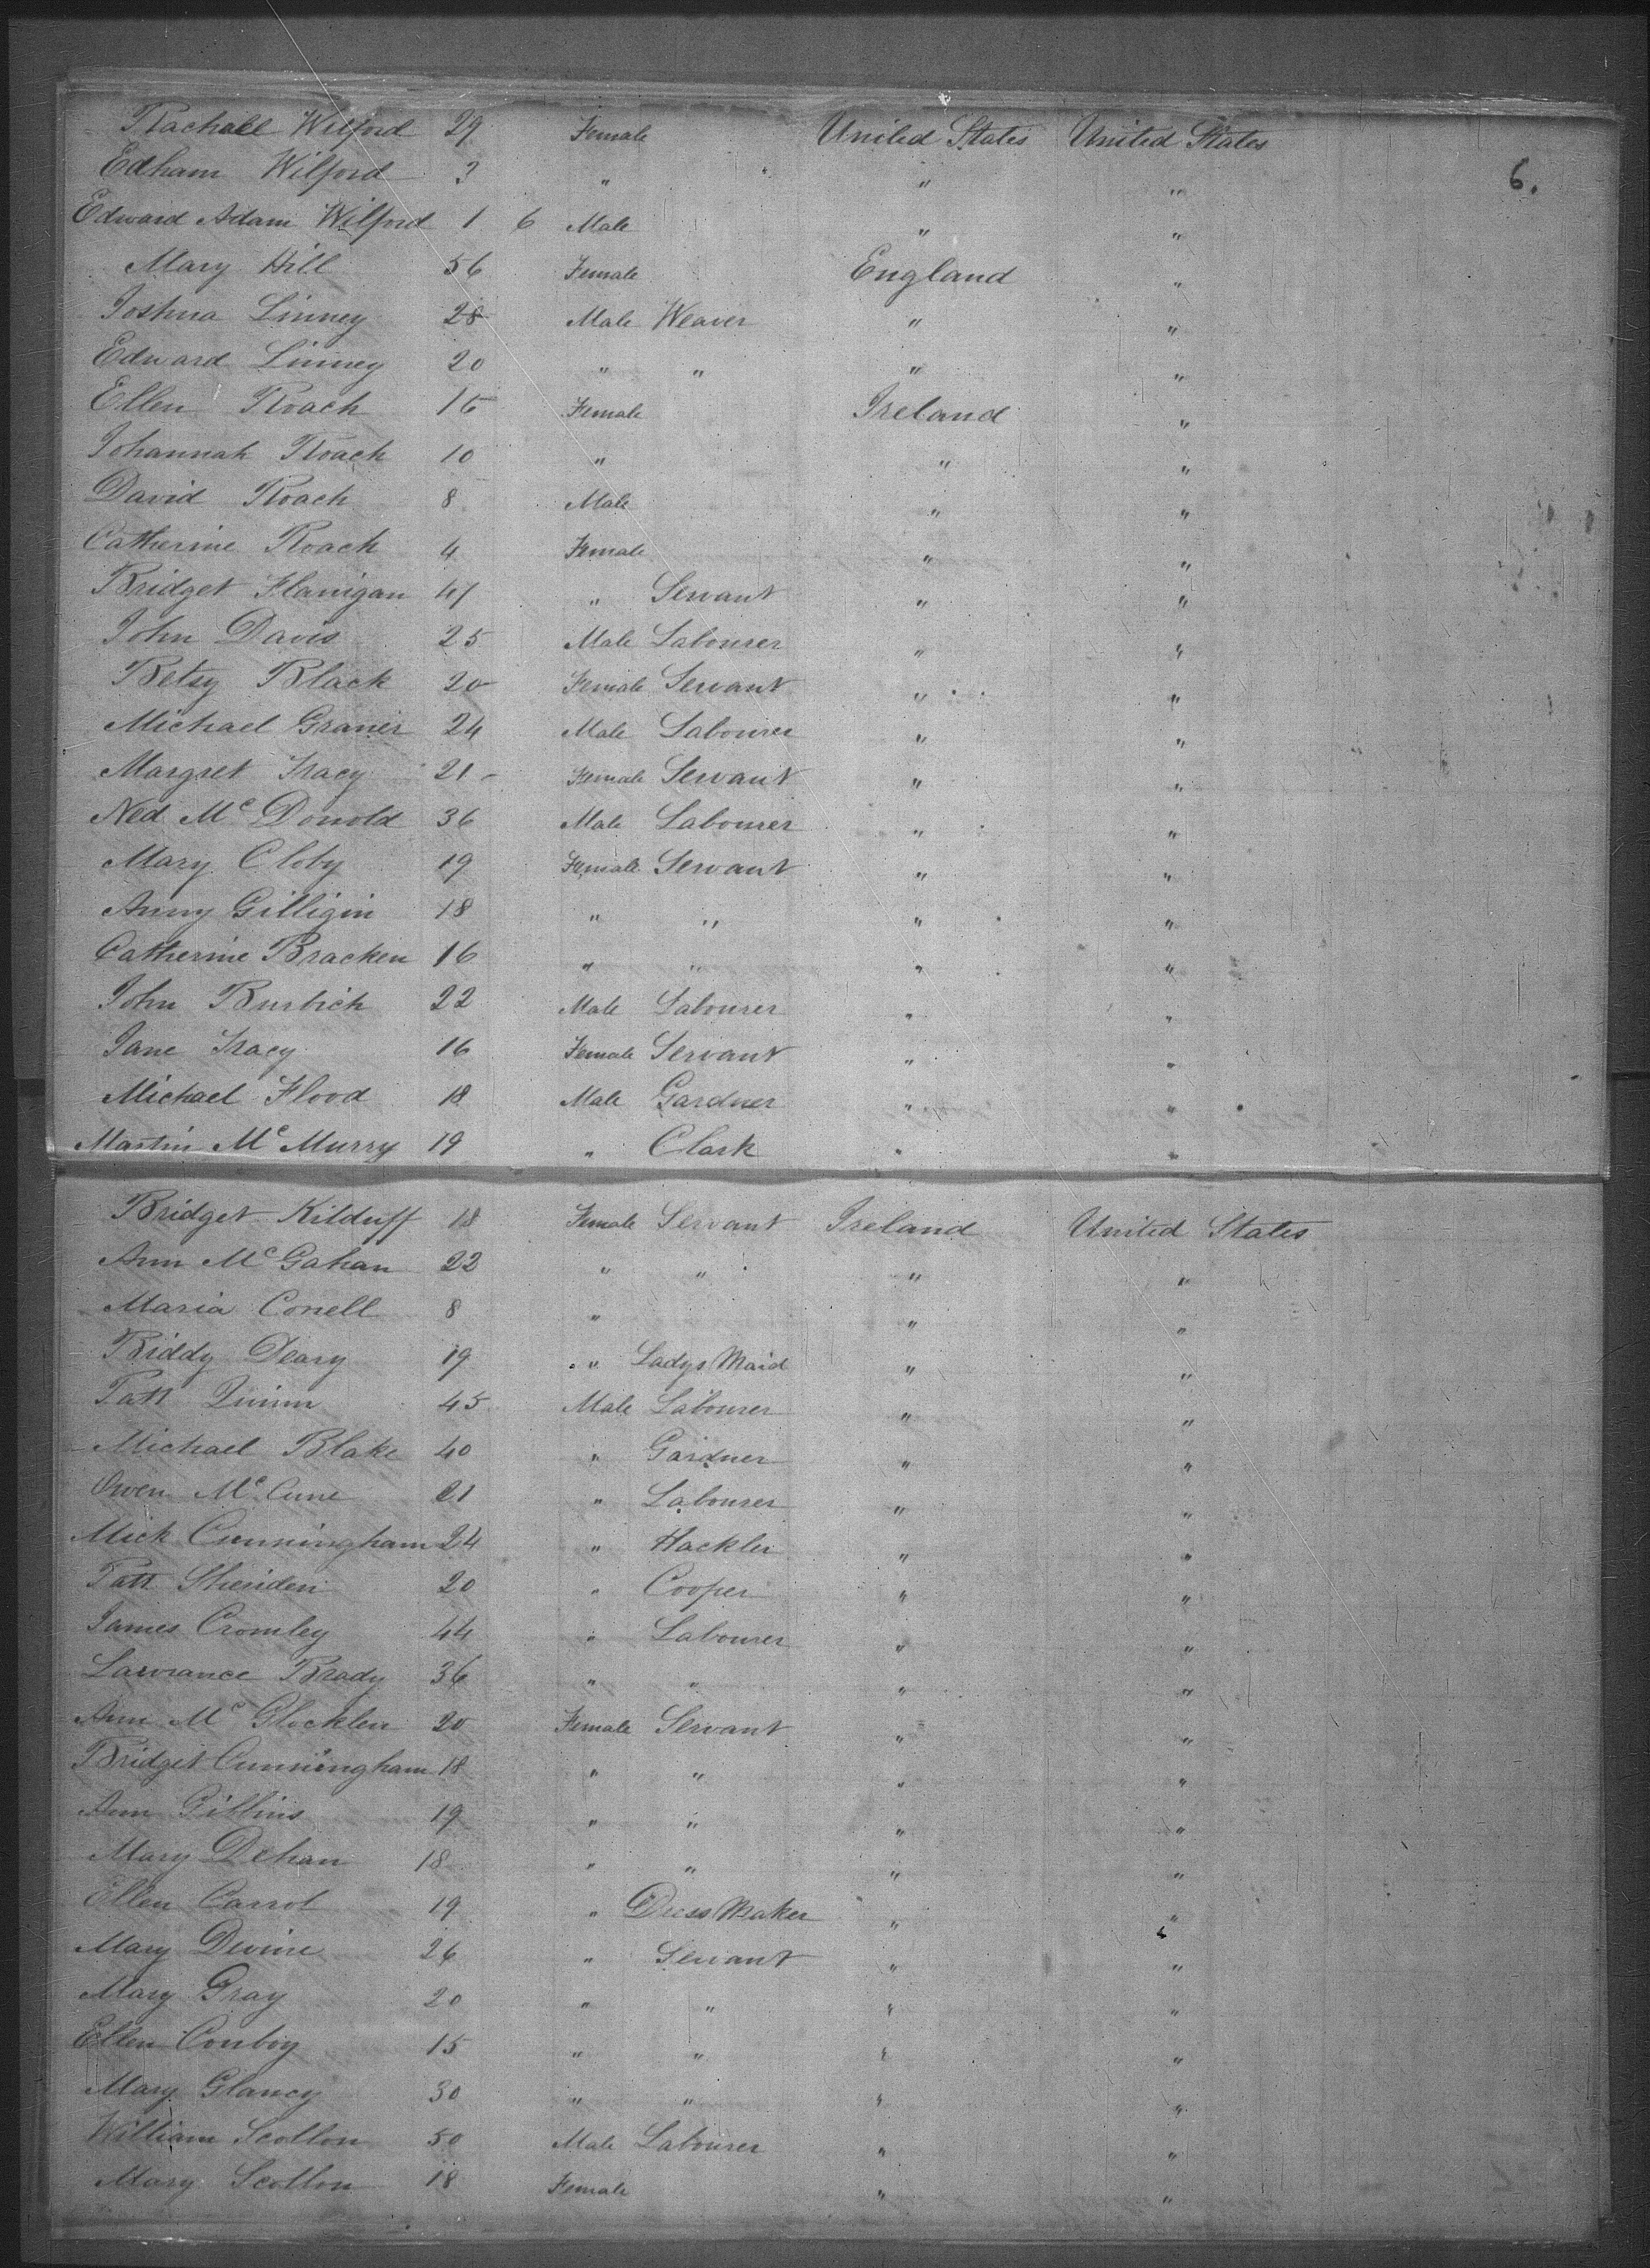 Rachall Wilford 29 Female United States United States
Edham Wilford 3 " " "
6.
Edward Adam Wilford 1 6 Male " "
Mary Hill 56 Female England "
Joshua Linney 28 Male Weaver " "
Edward Linney 20 " " " "
Ellen Roach 15 Female Ireland "
Johannah Roach 10 " " "
David Roach 8 Male " "
Catherine Roach 4 Female " "
Bridget Flanigan 41 " Servant " "
John Davis 25 Male Labourer " "
Betsy Black 20 Female Servant " "
Michael Graner 24 Male Labourer " "
Margret Tracy 21 Female Servant " "
Ned Mc Donold 36 Male Labourer " "
Mary Cloby 19 Female Servant " "
Anny Gilligin 18 " " " "
Catherine Bracken 16 " " " "
John Burbich 22 Male Labourer " "
Jane Tracy 16 Female Servant " "
Michael Flood 18 Male Gardner " "
Martin Mc Murry 19 " Clark " "
Bridget Kilduff 18 Female Servant Ireland United States
Ann Mc Gahan 22 " " " "
Maria Conell 8 " " "
Biddy Deary 19 " Ladys Maid " "
Patt Quinn 45 Male Labourer " "
Michael Blake 40 " Gardner " "
Owen Mc Cune 21 " Labourer " "
Mick Cunningham 24 " Hackler " "
Patt Sheriden 20 " Cooper " "
James Cromley 44 " Labourer " "
Lawrance Brady 36 " " " "
Ann Mc Glocklen 20 Female Servant " "
Bridget Cunningham 18 " " " "
Ann Gibbins 19 " " " "
Mary Dehan 18 " " " "
Ellen Carrol 19 " Dress Maker " "
Mary Devine 26 " Servant " "
Mary Gray 20 " " " "
Ellen Conboy 15 " " " "
Mary Glancy 30 " " " "
William Scollon 50 Male Labourer " "
Mary Scollon 18 Female " "